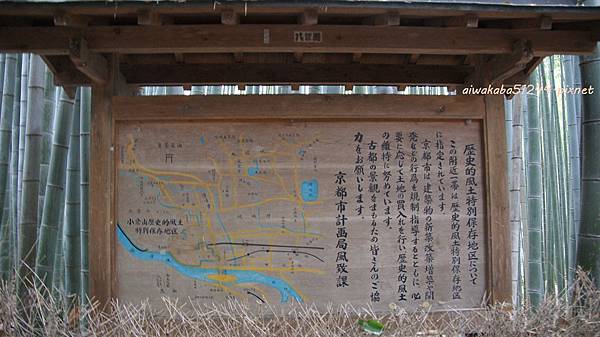 歴史的風土特別保存地区について
この附近一帯は歴史的風土特別保存地区
に指定されています。
京都市は建築物の新築改築増築や開
発などの行為を規制指導するとともに、必
要に応じて土地の買入れを行い歴史的風土
の維持に努めています。
古都の景観をまもるため皆さんのご協
力をお願いします。
京都市計画局風致課
小倉山歴史的風土
特別保存地区
aiwakaba5124.pixnet